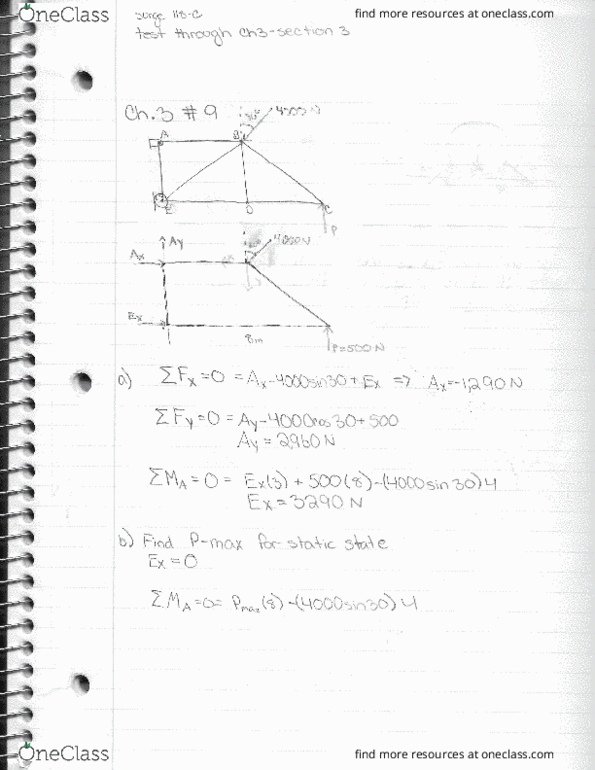 OneClass
find more resources at oneclass.com
surge 118-C
test through Ch3-section 3
Ch.3 #9
30° 4000 N
A B
E D C
P
Ay
4000N
Ax
Ex
8m
P=500N
a) ΣFx=0 = Ax-4000sin30+Ex => Ax=-1,290N
ΣFy=0=Ay-4000cos30+500
Ay=2960N
ΣMA=0= Ex(3)+500(8)-(4000sin30)4
Ex=3290N
b) Find P-max for static state
Ex=0
ΣMA=0= Pmax(8)-(4000sin30)4
OneClass
find more resources at oneclass.com